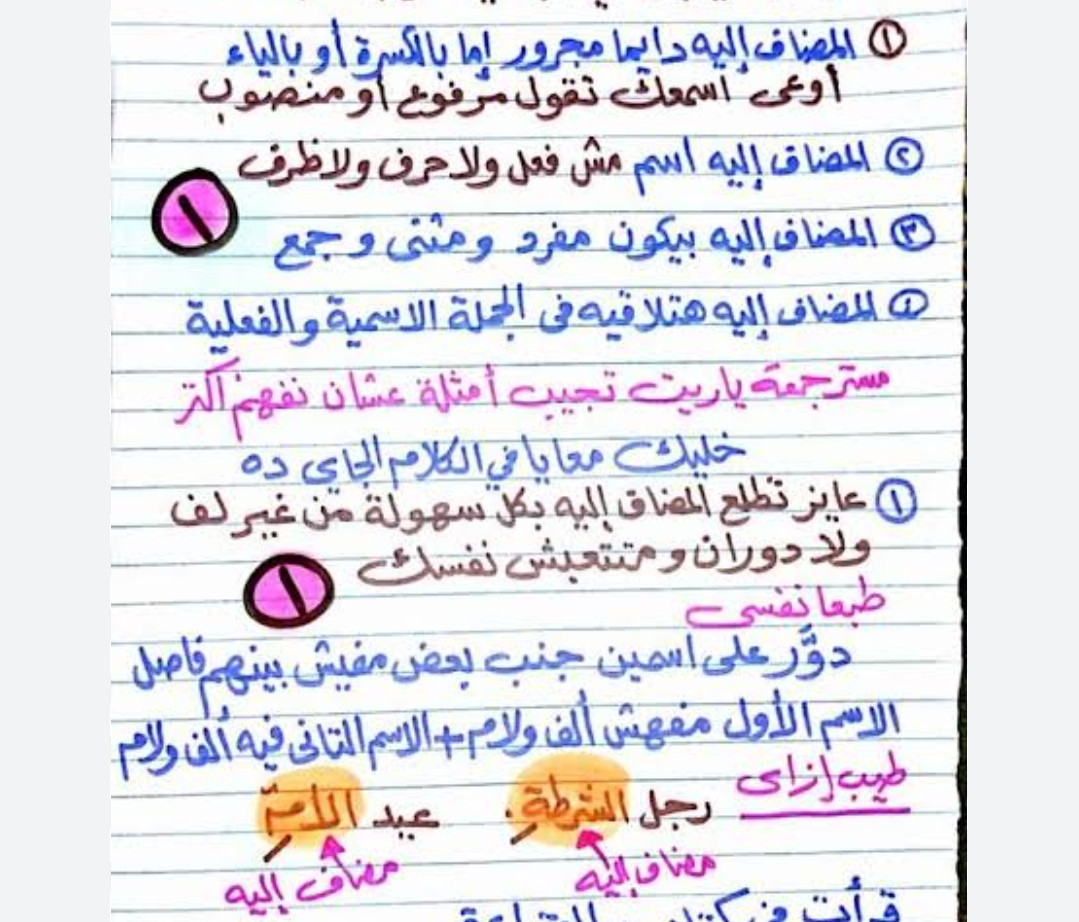 ① المضاف إليه دايما مجرور إما بالكسرة أو بالياء
أوعى أسمعك تقول مرفوع أو منصوب
② المضاف إليه اسم مش فعل ولا حرف ولا ظرف
١
③ المضاف إليه بيكون مفرد ومثنى وجمع
المضاف إليه هتلاقيه فى الجملة الاسمية والفعلية
مستر جمعة ياريت تجيب أمثلة عشان نفهم اكتر
خليك معايا في الكلام الجاى ده
① عايز تطلع المضاف إليه بكل سهولة من غير لف
ولا دوران ومتتعبش نفسك
١
طبعا نفسى
دوَّر على اسمين جنب بعض مفيش بينهم فاصل
الاسم الأول مفهش ألف ولام + الاسم التانى فيه ألف ولام
طيب إزاى
رجل الشرطةِ . عيد الأمِّ
مضاف إليه مضاف إليه
قرأت فى